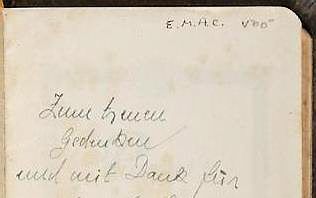 E.M.A.C. V00
Zum treuen
Gedenken
und mit Dank für